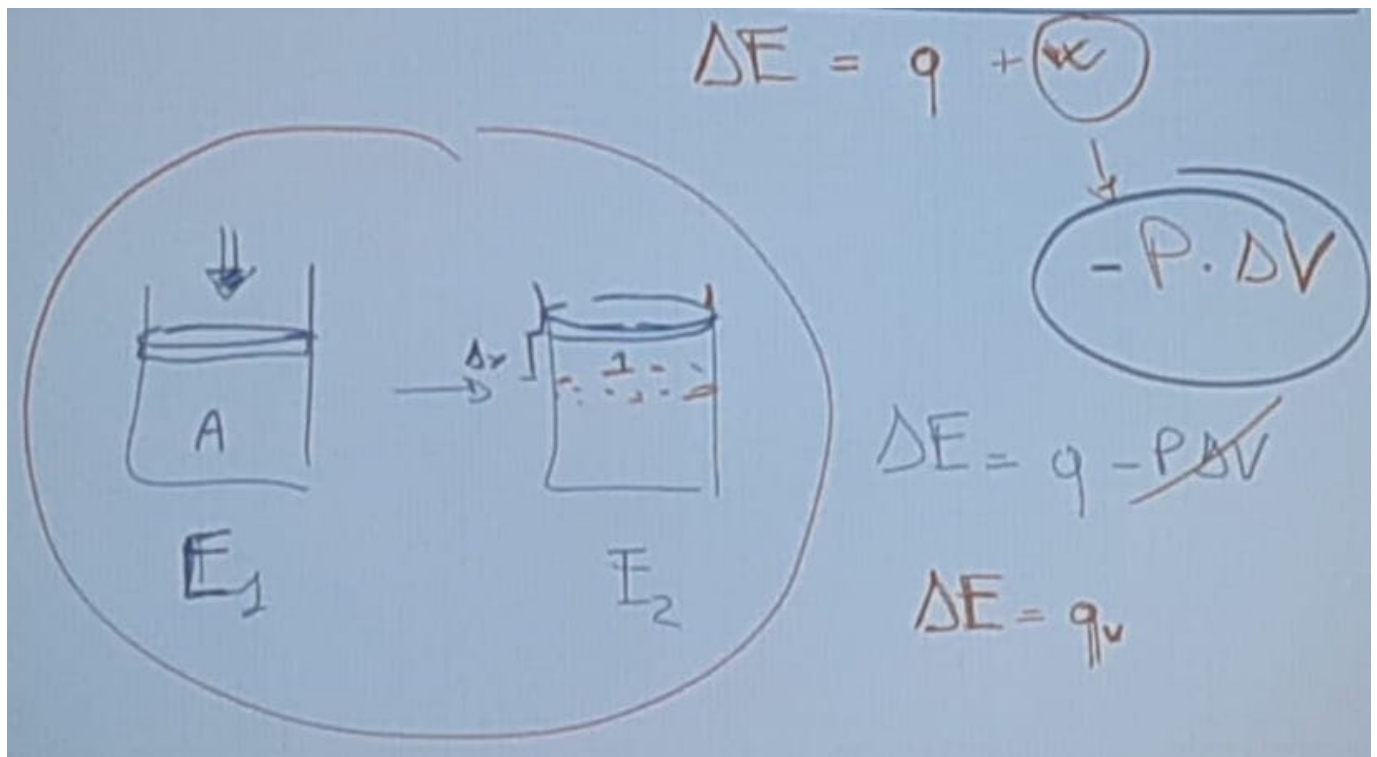 ΔE = q + w
- P. ΔV
A
Δv
1
E₁
E₂
ΔE = q - PΔV
ΔE = qᵥ